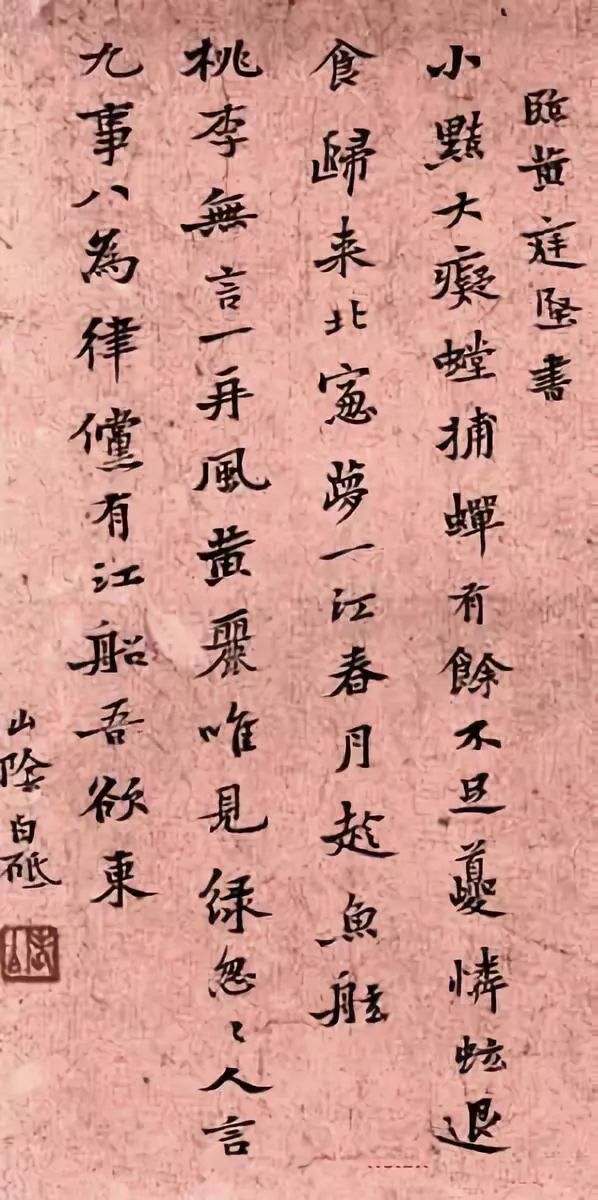 臨黄庭堅書
小黠大癡螳捕蟬有餘不足夔憐蚿退
食歸来北窓夢一江春月趂魚船
桃李無言一再風黄麗唯見緑怱〻人言
九事八為律儻有江船吾欲東
山陰白砥